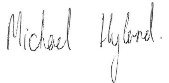 Michael Hyland.